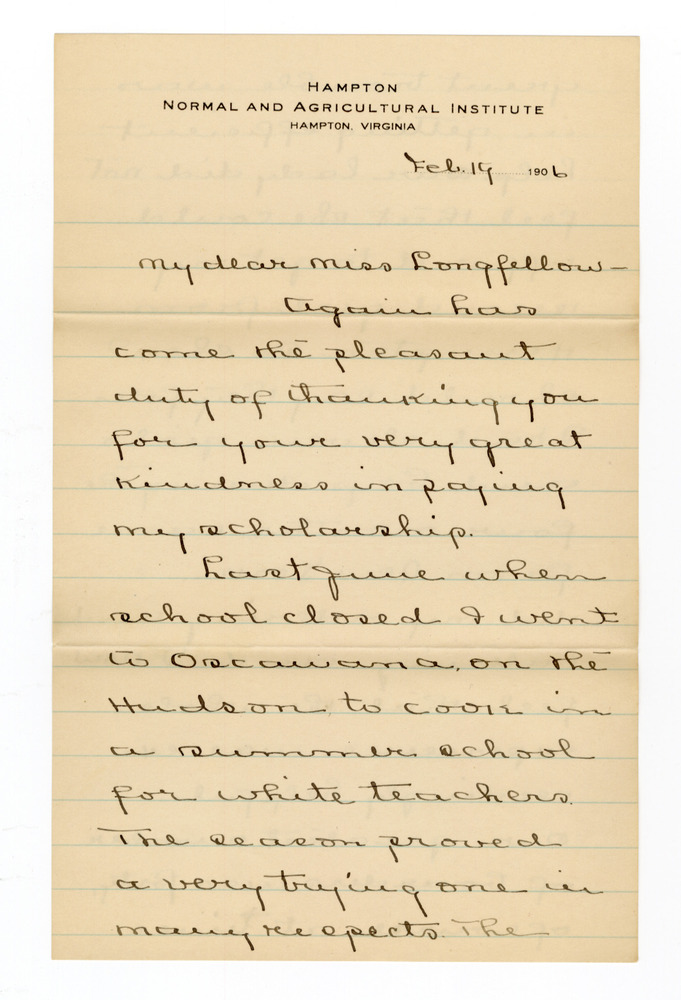 HAMPTON
NORMAL AND AGRICULTURAL INSTITUTE
HAMPTON, VIRGINIA
Feb. 19 1906
My dear Miss Longfellow—
Again has
come the pleasant
duty of thanking you
for your very great
kindness in paying
my scholarship.
Last June when
school closed I went
to Oscawana, on the
Hudson, to cook in
a summer school
for white teachers.
The season proved
a very trying one in
many respects. The